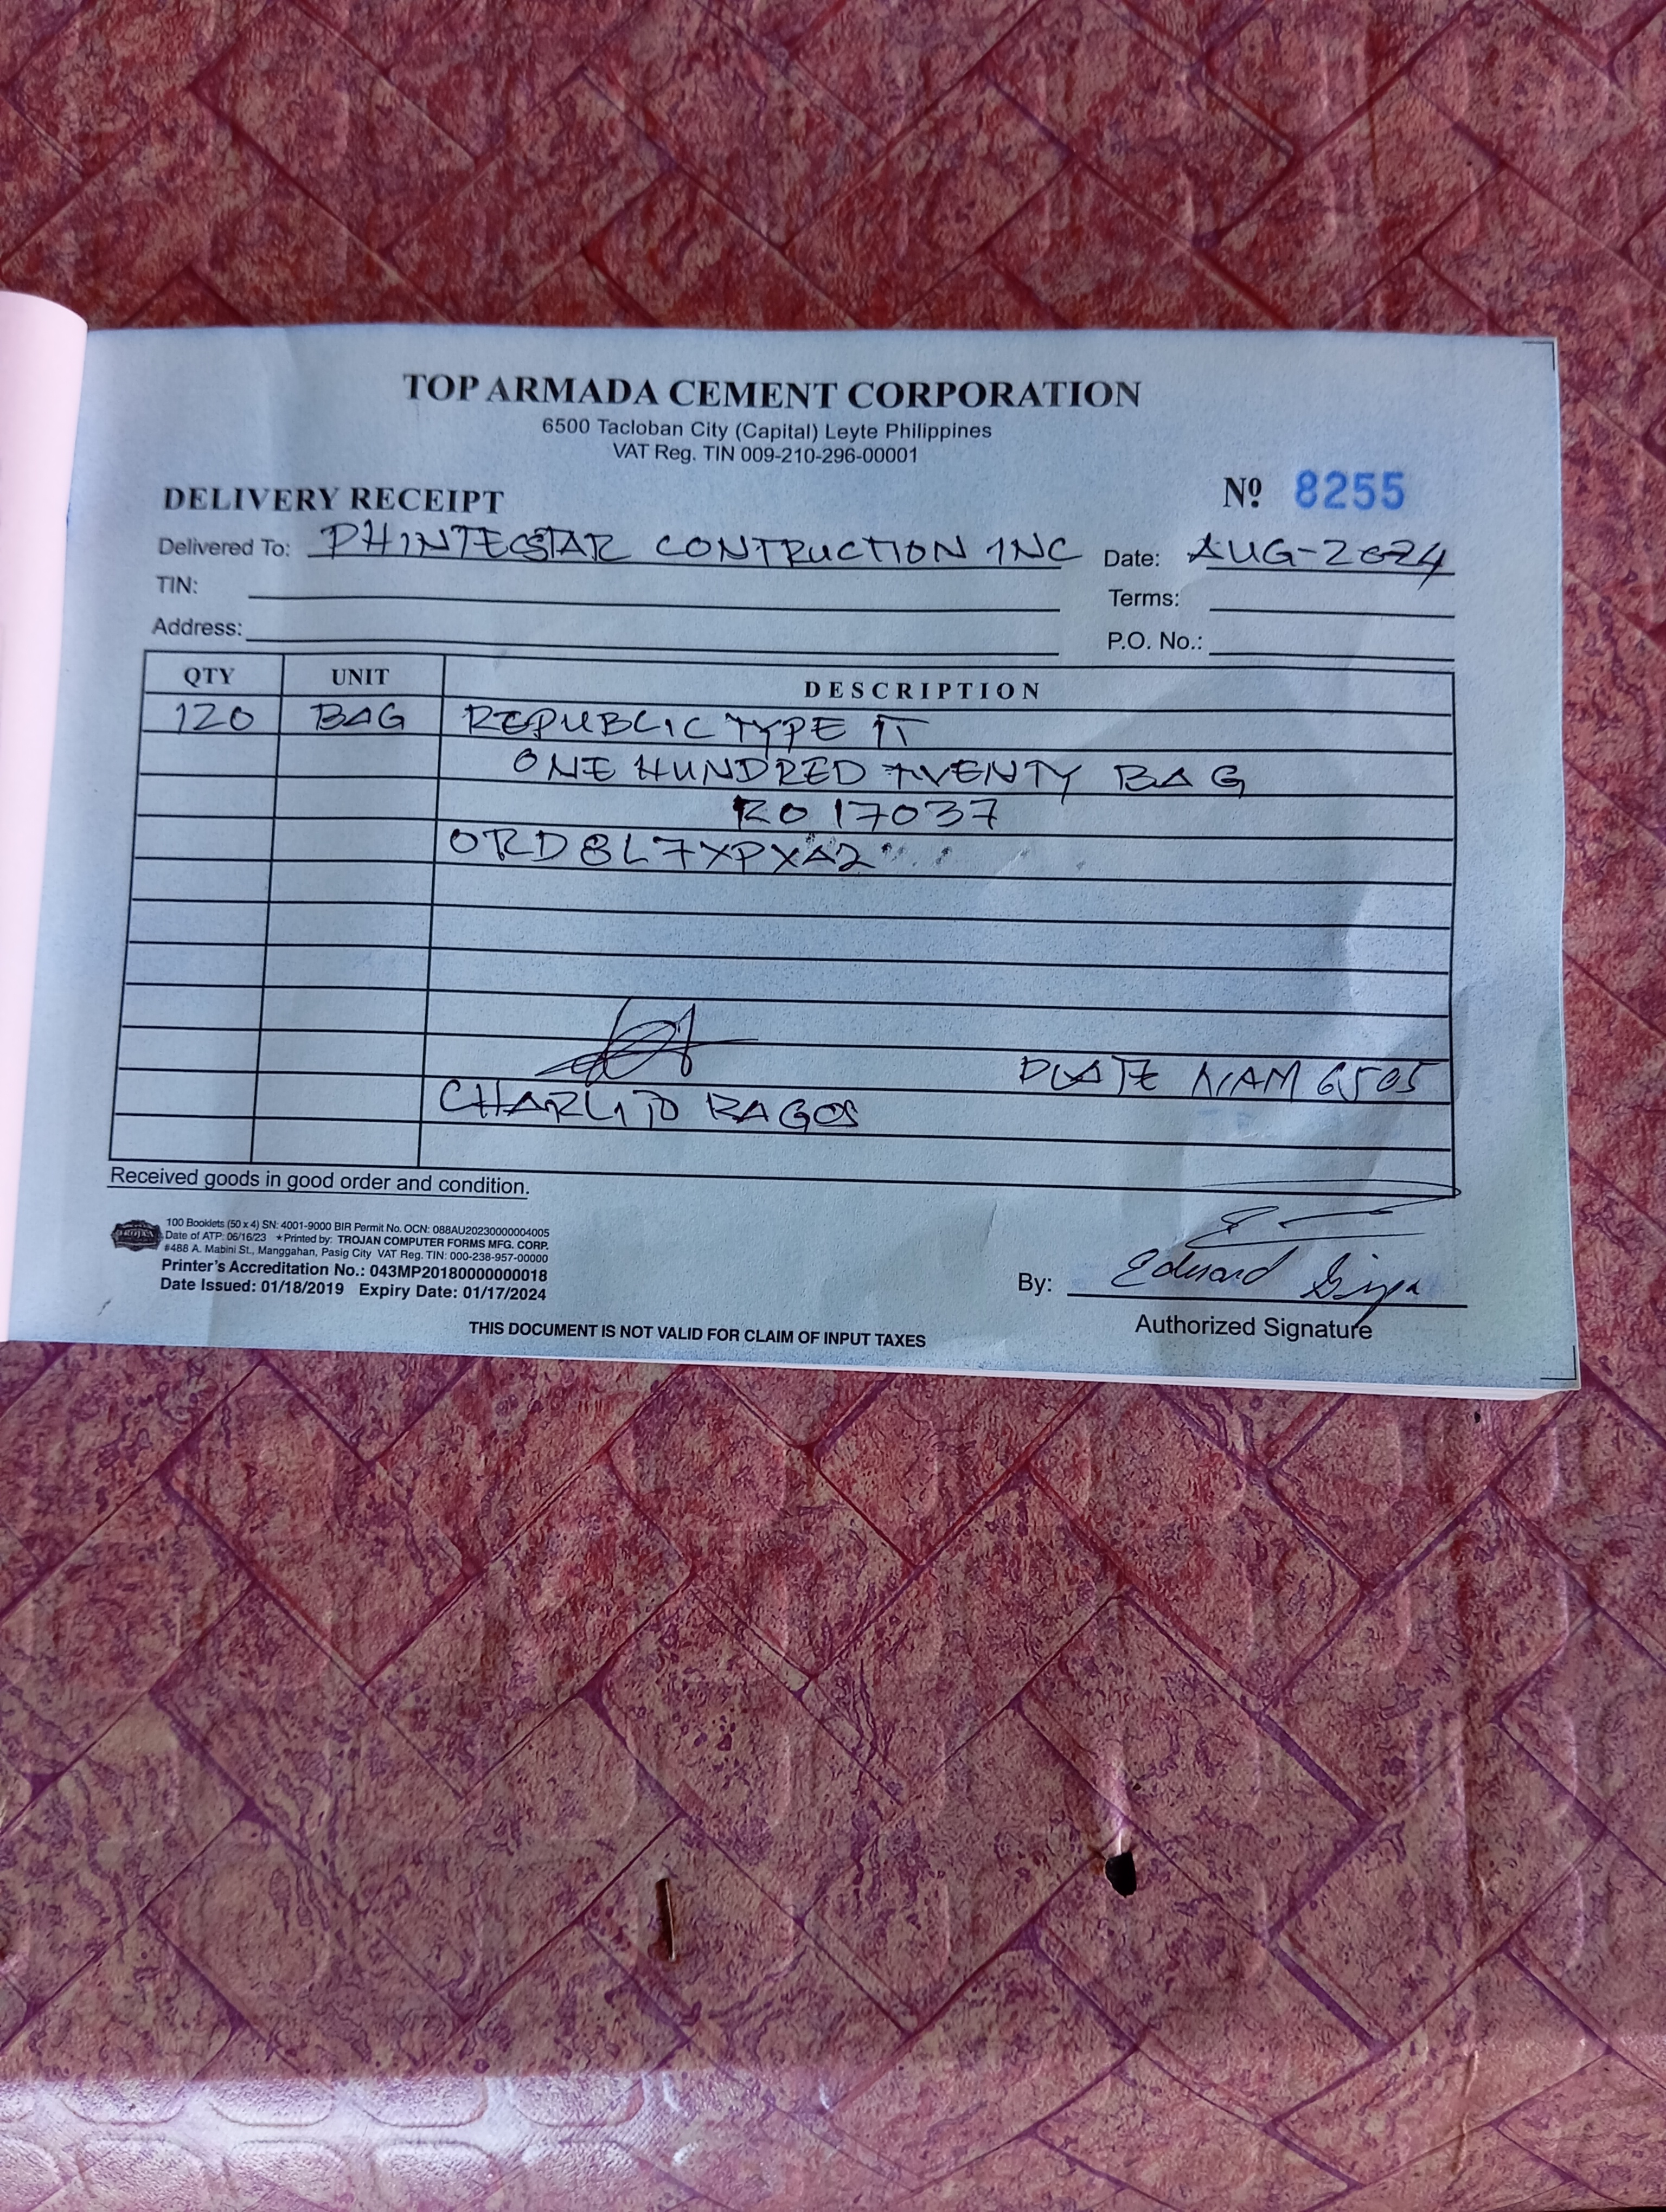 TOP ARMADA CEMENT CORPORATION
6500 Tacloban City (Capital) Leyte Philippines
VAT Reg. TIN 009-210-296-00001
DELIVERY RECEIPT
Nº 8255
Delivered To: PHINTEGSTAR CONTRUCTION INC
Date: AUG-2-024
TIN:
Terms:
Address:
P.O. No.:
QTY UNIT DESCRIPTION
120 BAG REPUBLIC TYPE 1T
ONE HUNDRED TWENTY BAG
RO 17037
ORD8L7XPXA2
PLATE NAM 6505
CHARLITO RAGOS
Received goods in good order and condition.
TROJAN
100 Booklets (50 x 4) SN: 4001-9000 BIR Permit No. OCN: 088AU20230000004005
Date of ATP: 06/16/23 ★Printed by: TROJAN COMPUTER FORMS MFG. CORP.
#488 A. Mabini St., Manggahan, Pasig City VAT Reg. TIN: 000-238-957-00000
Printer's Accreditation No.: 043MP20180000000018
Date Issued: 01/18/2019 Expiry Date: 01/17/2024
By: Edward
Authorized Signature
THIS DOCUMENT IS NOT VALID FOR CLAIM OF INPUT TAXES